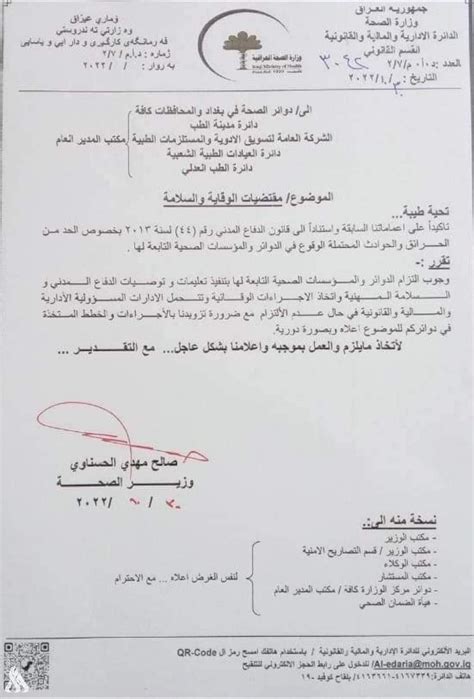 جمهورية العراق
وزارة الصحة
الدائرة الادارية والمالية والقانونية
القسم القانوني
العدد: د.ا.م/٢/٧ ٣٠٤٢
التاريخ: /٢٠٢٢
وزارة الصحة العراقية
Iraqi Ministry of Health
الى/ دوائر الصحة في بغداد والمحافظات كافة
دائرة مدينة الطب
الشركة العامة لتسويق الادوية والمستلزمات الطبية مكتب المدير العام
دائرة العيادات الطبية الشعبية
دائرة الطب العدلي
الموضوع/ مقتضيات الوقاية والسلامة
تحية طيبة...
تاكيداً على اعماماتنا السابقة واستناداً الى قانون الدفاع المدني رقم (٤٤) لسنة ٢٠١٣ بخصوص الحد من
الحرائق والحوادث المحتملة الوقوع في الدوائر والمؤسسات الصحية التابعة لها .
تقرر :-
وجوب التزام الدوائر والمؤسسات الصحية التابعة لها بتنفيذ تعليمات و توصيات الدفاع المدني و
السلامة المهنية واتخاذ الاجراءات الوقائية وتتحمل الادارات المسؤولية الأدارية
والمالية والقانونية في حال عدم الألتزام مع ضرورة تزويدنا بالأجراءات والخطط المتخذة
في دوائركم للموضوع اعلاه وبصورة دورية.
لأتخاذ مايلزم والعمل بموجبه واعلامنا بشكل عاجل... مع التقدير ...
صالح مهدي الحسناوي
وزير الصحة
٢٠٢٢/ /٣٠
نسخة منه الى:-
- مكتب الوزير
- مكتب الوزير / قسم التصاريح الامنية
- مكتب الوكلاء
- مكتب المستشار
- دوائر مركز الوزارة كافة / مكتب المدير العام
- هيأة الضمان الصحي
لنفس الغرض اعلاه ... مع الاحترام
البريد الألكتروني للدائرة الإدارية والمالية والقانونية / باستخدام هاتفك امسح رمز ال QR-Code
Al-edaria@moh.gov.iq/ للدخول على رابط الحجز الالكتروني للتلقيح